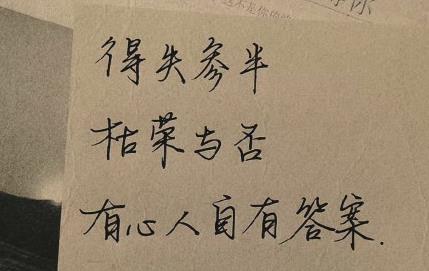 得失参半
枯荣与否
有心人自有答案.